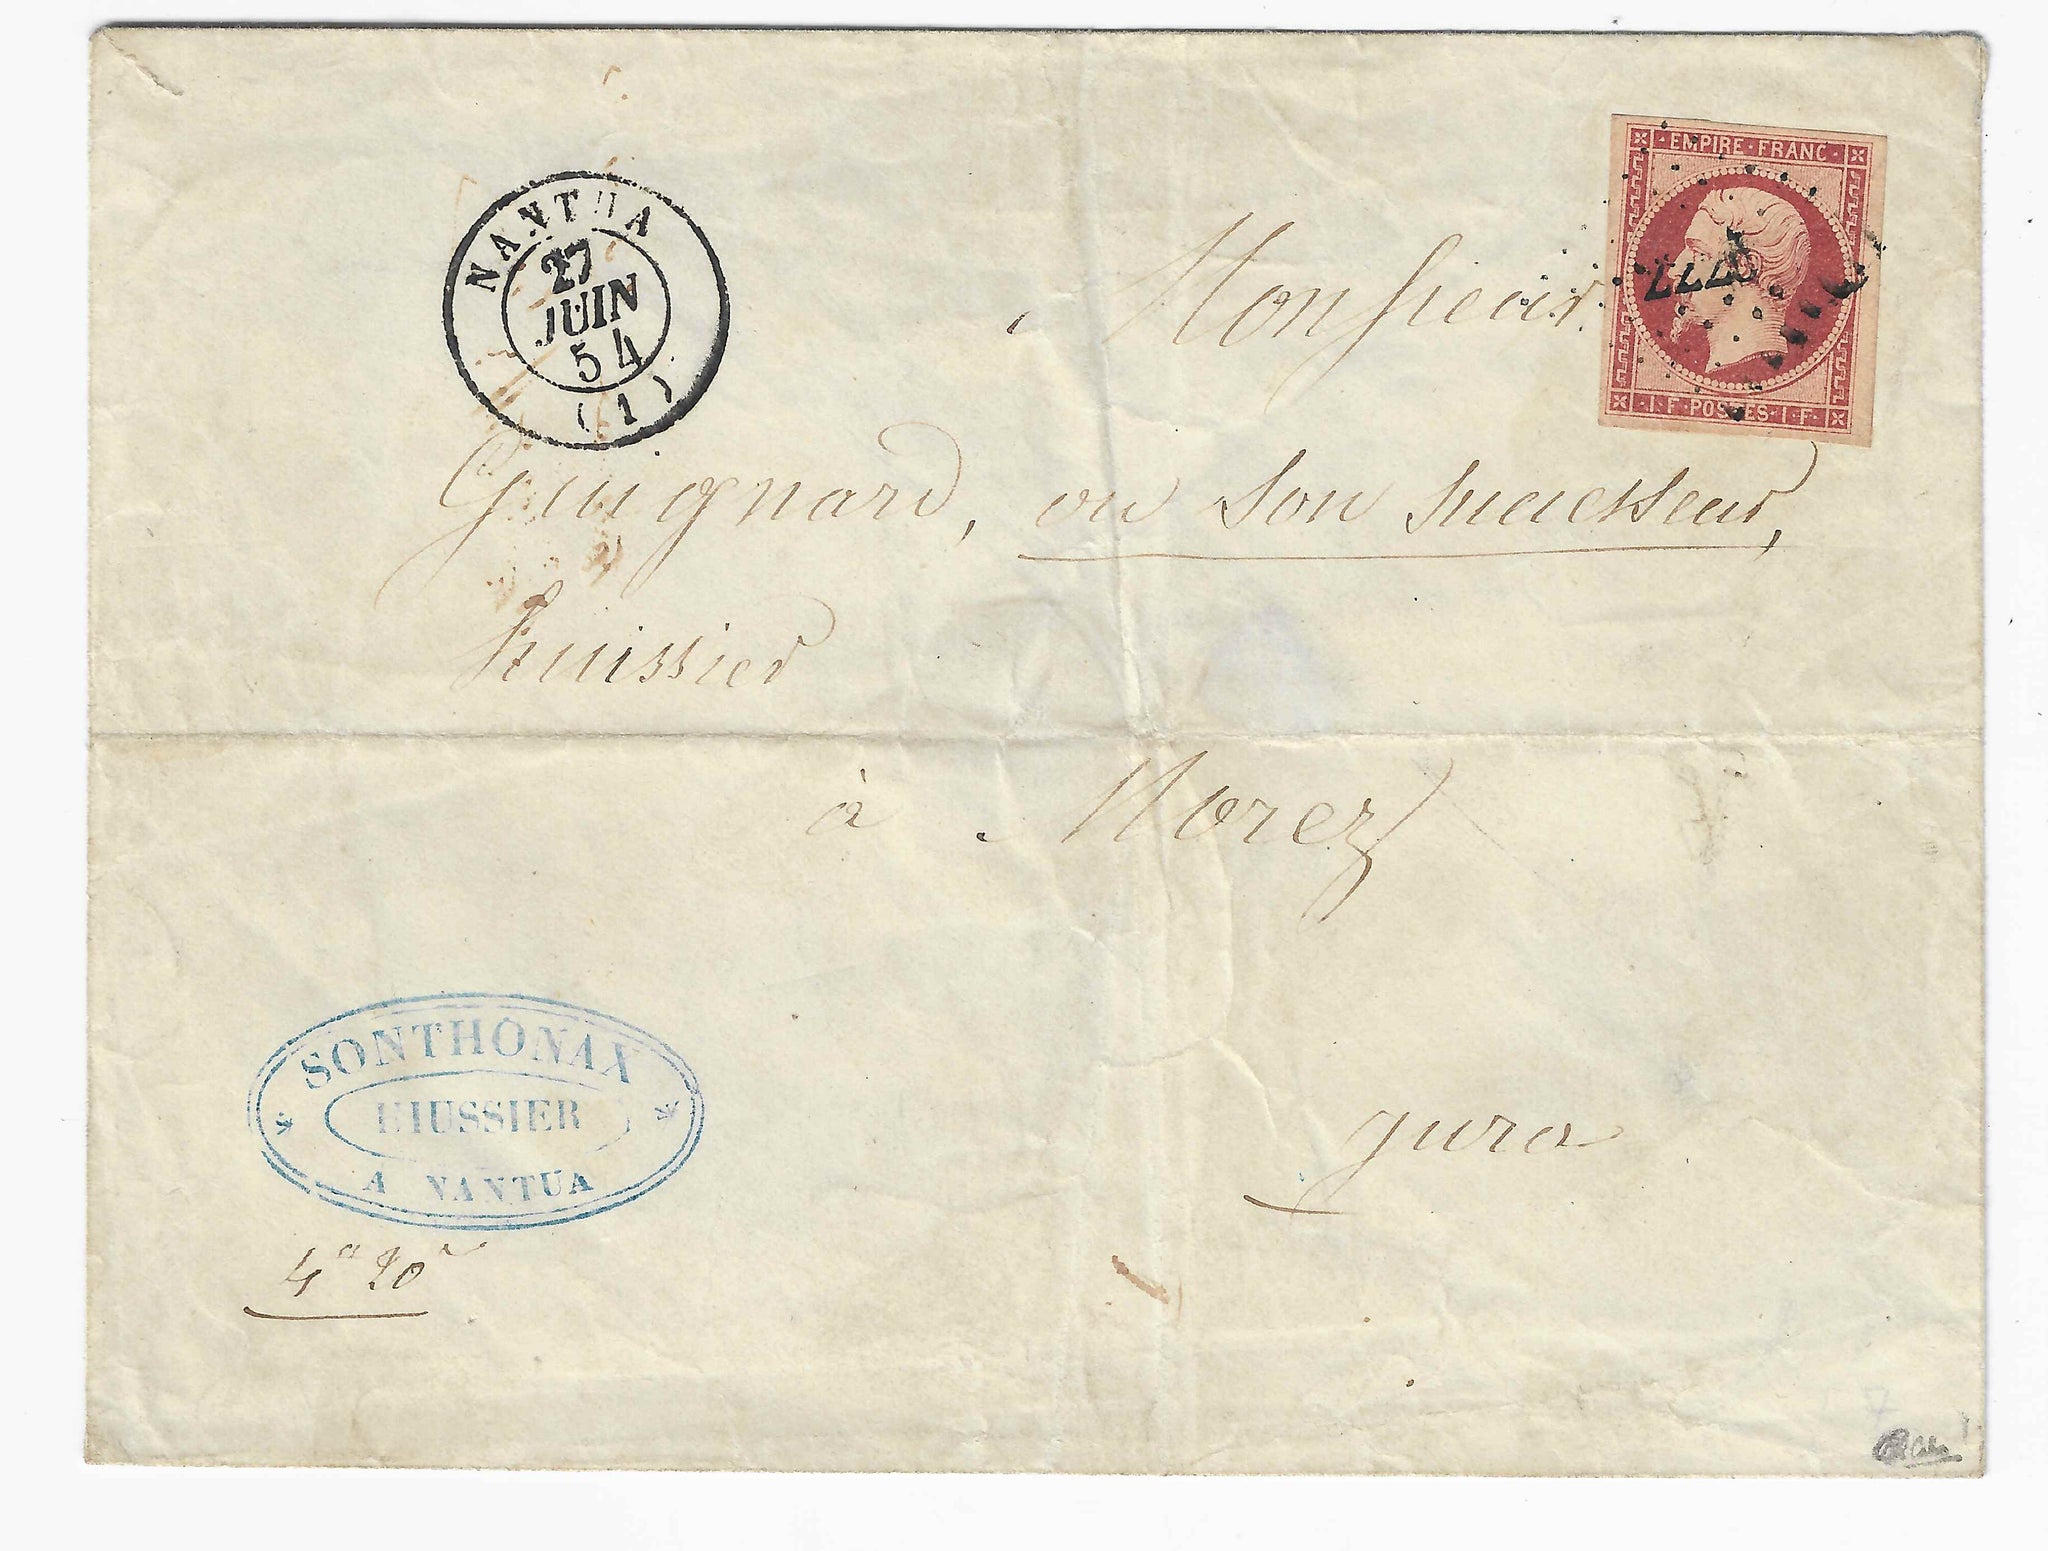 NANTUA
27
JUIN
54
(1)
EMPIRE · FRANC ·
· I · F · POSTES · I · F ·
Monsieur
Guignard, ou son successeur,
huissier
à Morez
Jura
SONTHONAX
HIUSSIER
A NANTUA